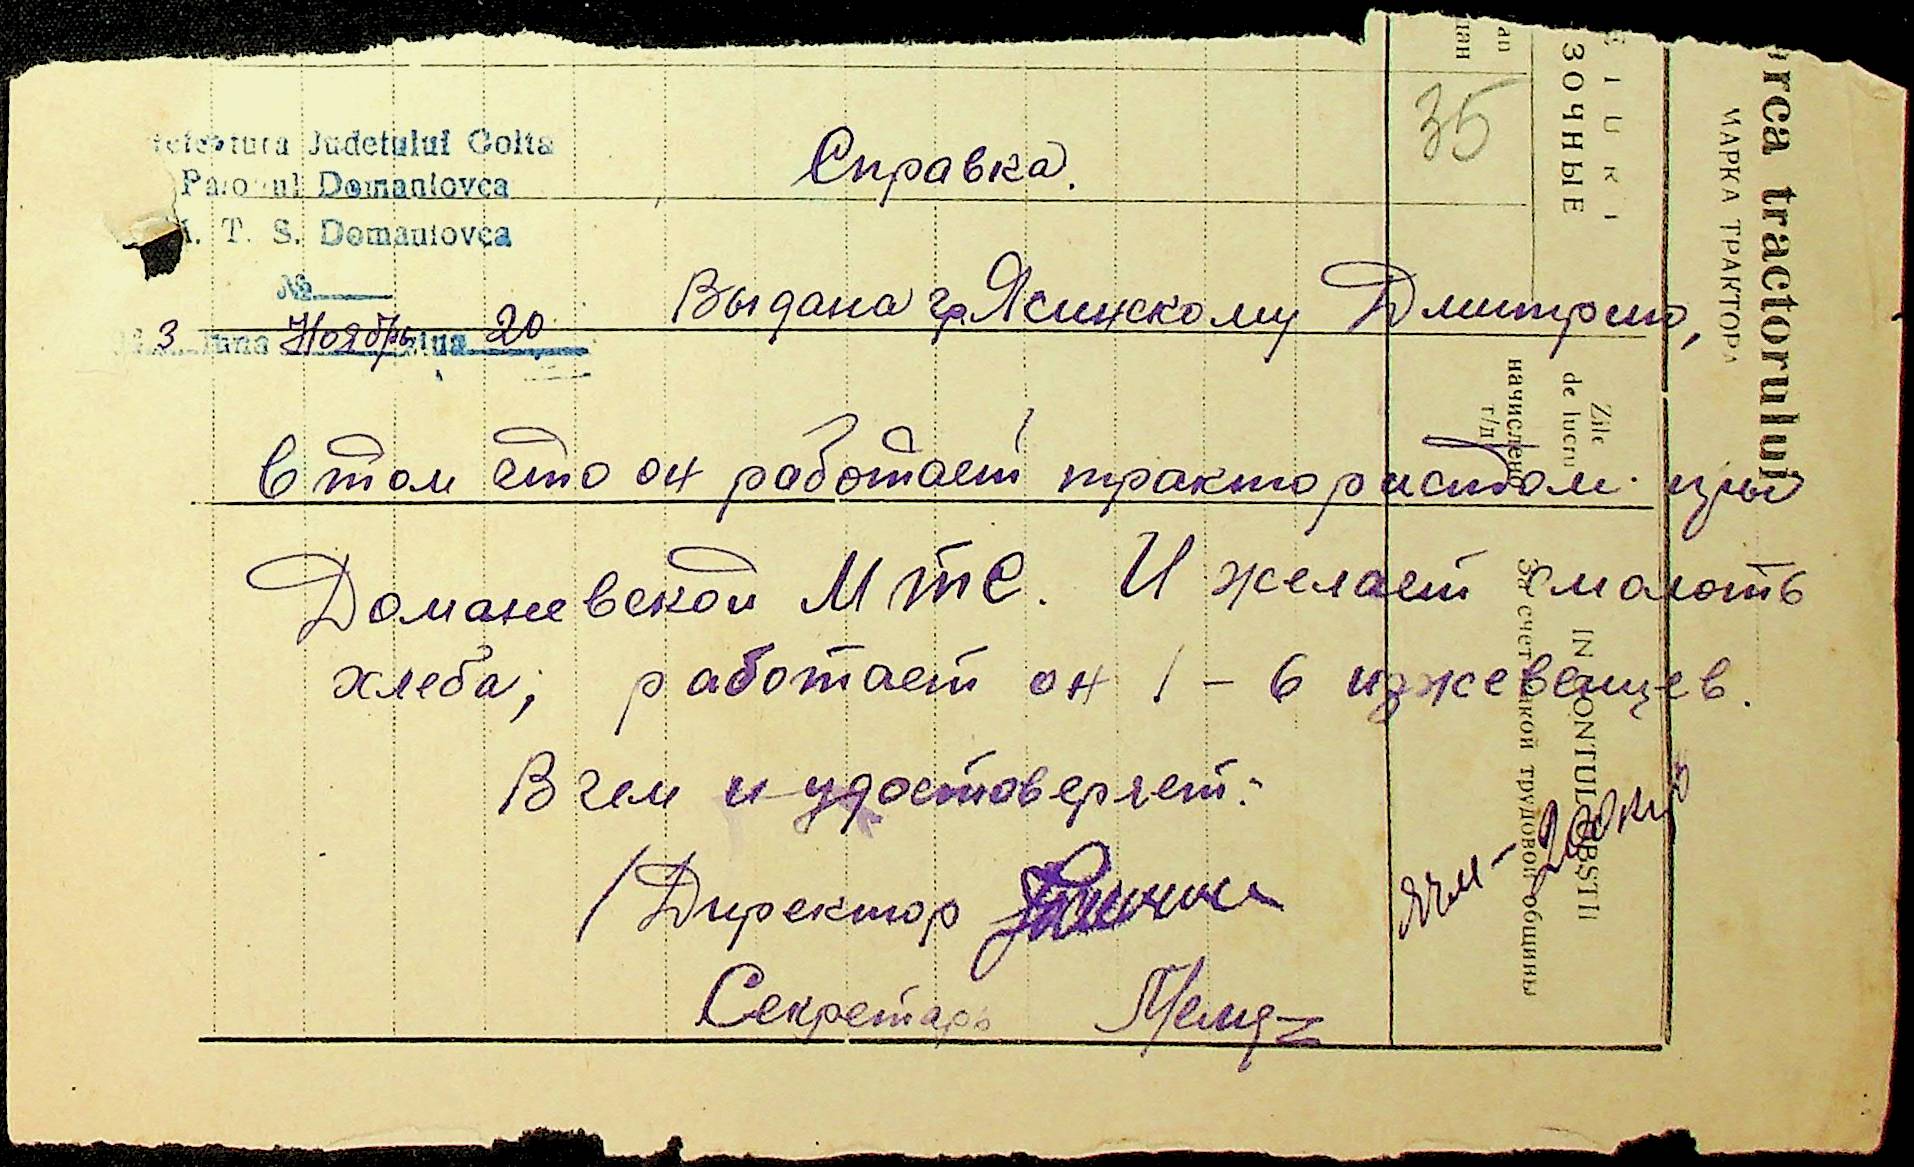 Prefectura Judetului Golta
Raionul Domaniovca
M. T. S. Domaniovca
№
3 luna Ноябрь ziua 20
Справка.
35
Выдана гр. Ясинскому Дмитрию,
в том что он работает трактористом при
Доманевской МТС. И желает смолоть
хлеба; работает он 1 – 6 иджевенцев.
В чем и удостоверяет:
Директор
Секретарь
ячм – 200 кгр
ЗОЧНЫЕ
rca tractorului
МАРКА ТРАКТОРА
Zile
de lucru
начислено
т/д
IN CONTUL OBȘTII
За счет какой трудовой общины